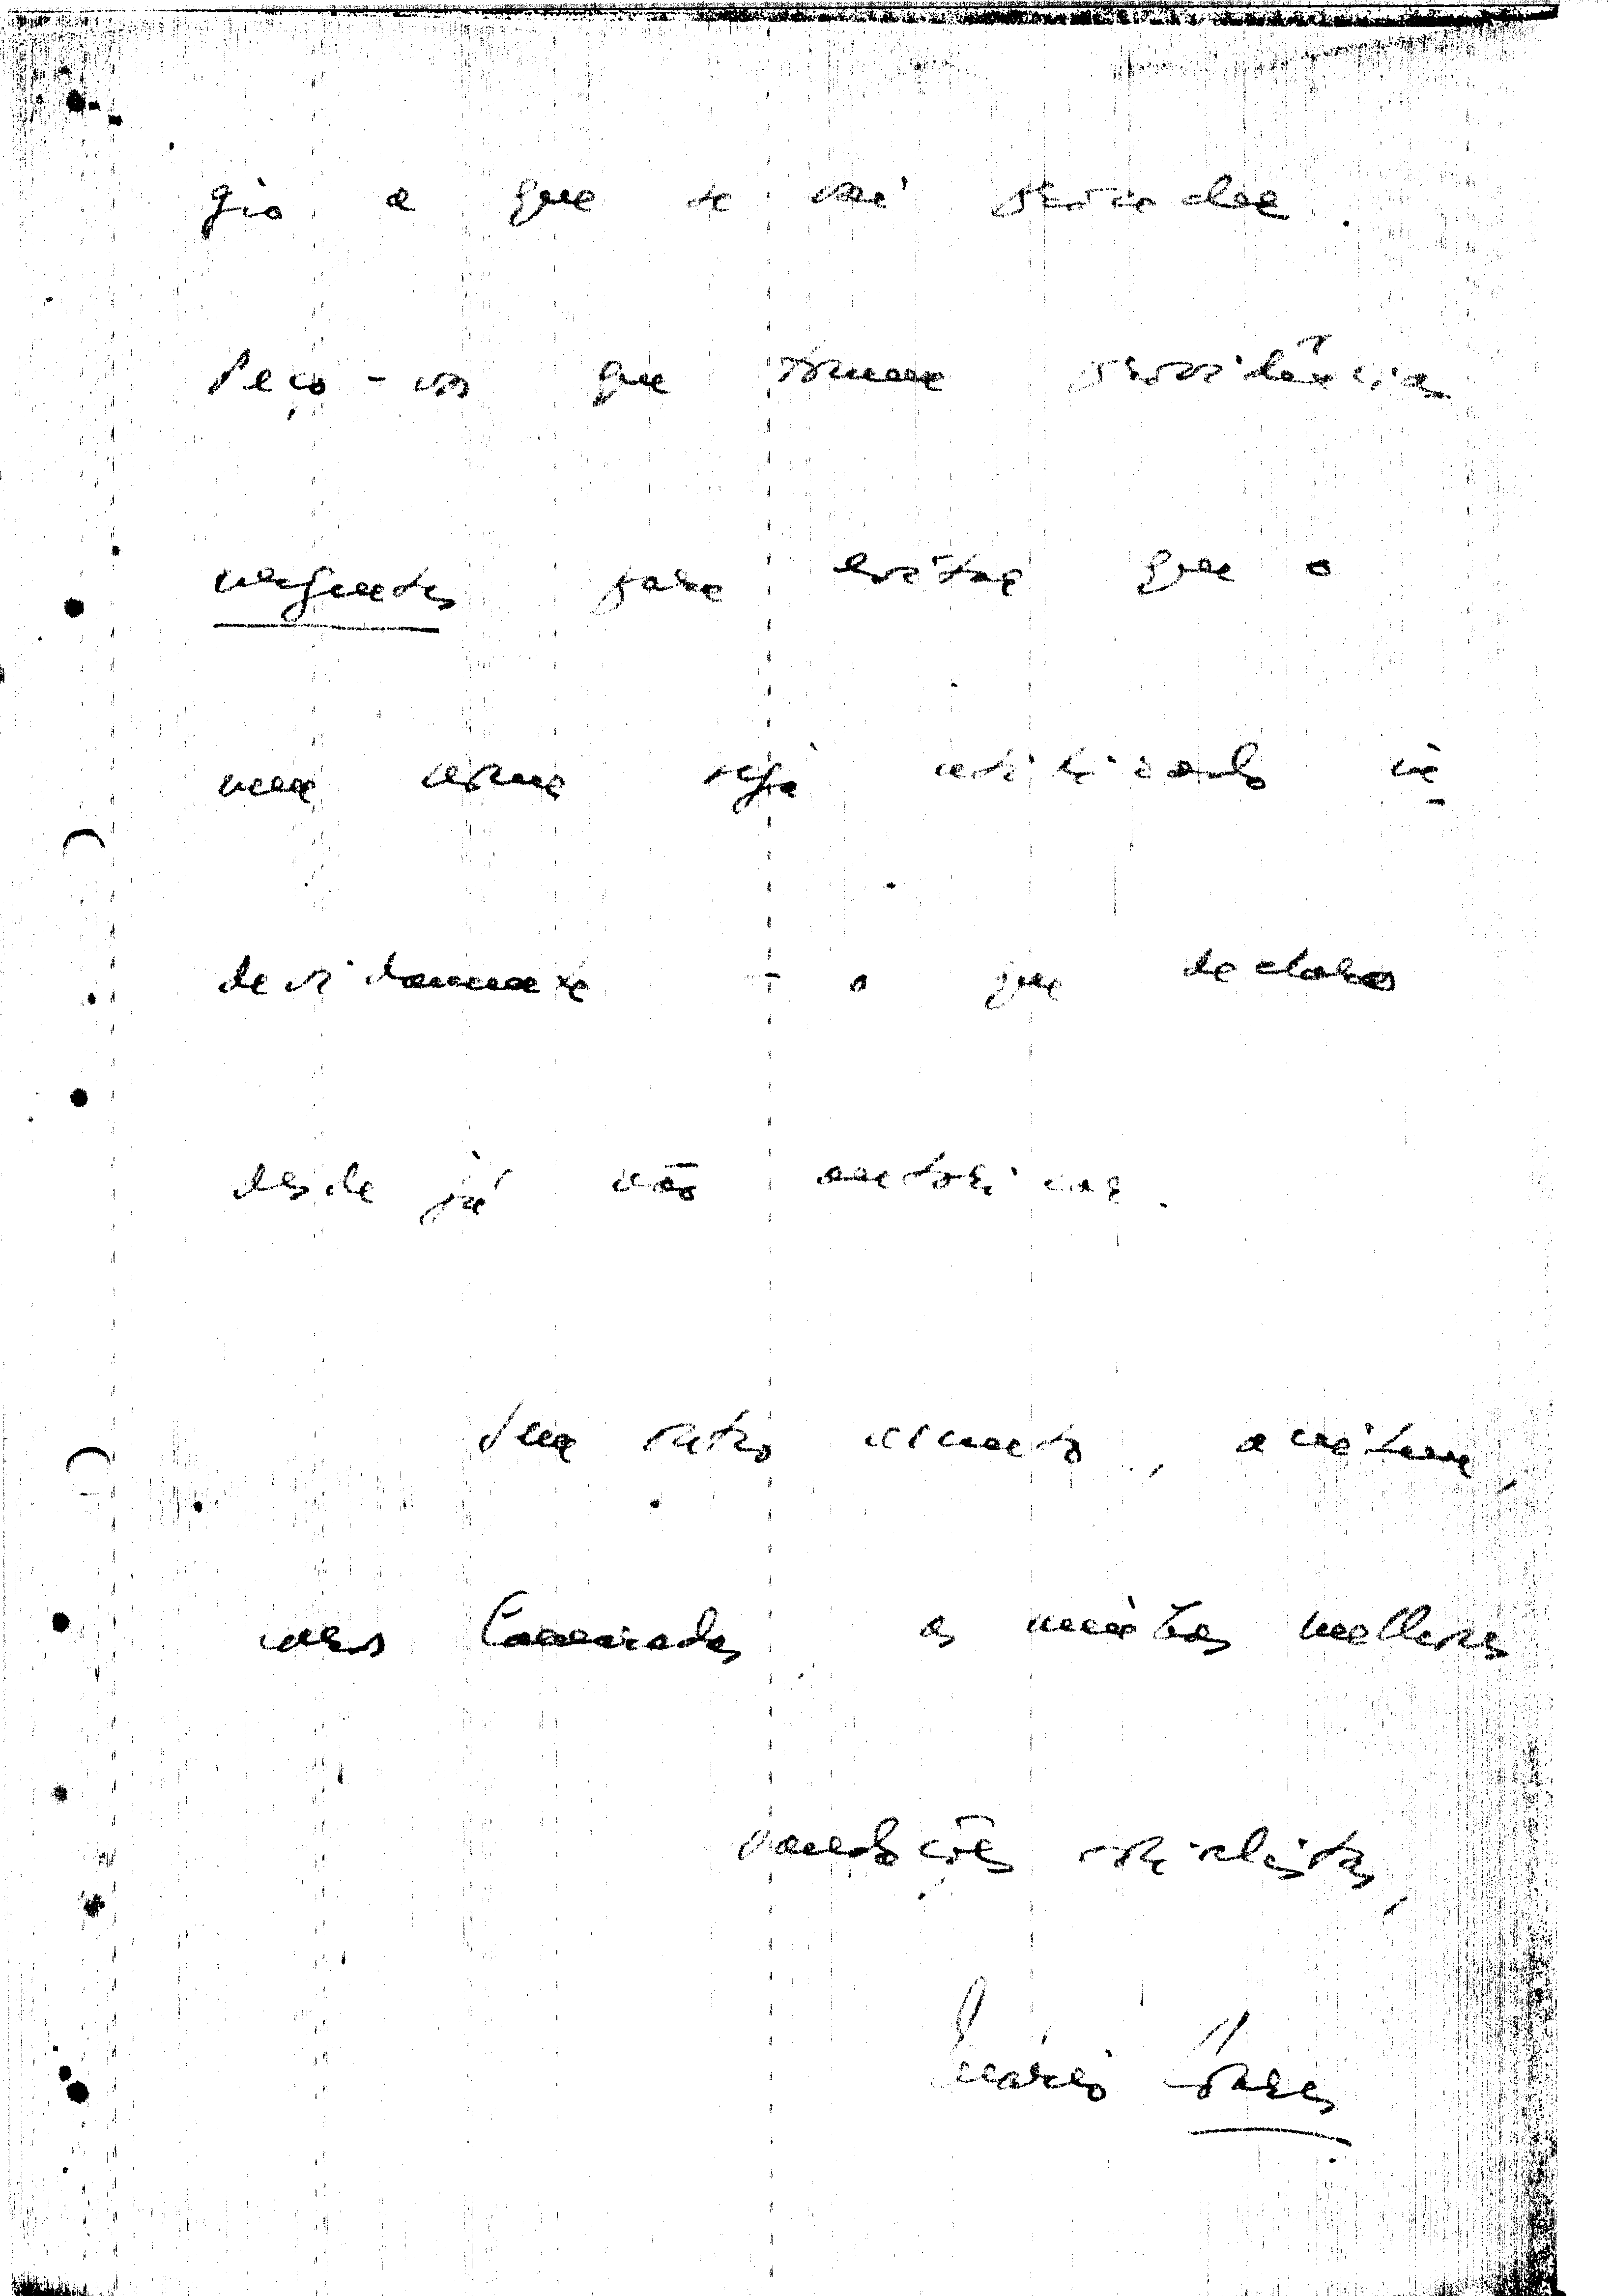 gio a que se vai proceder.
Peço-vos que tomem providências
urgentes para evitar que o
meu nome seja utilizado in-
devidamente - o que declaro
desde já não autorizar.
Sem outro assunto, aceitem,
caros Camaradas, as minhas melhores
saudações socialistas,
Mário Soares